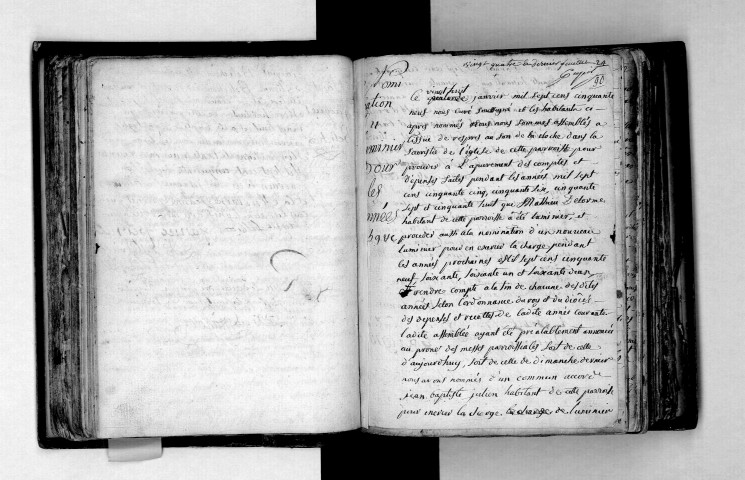 vingt quatre le dernier feuillet 24
90
Nomi
nation
du
luminier
pour
les
années
vingt huit
le janvier mil sept cens cinquante
neuf nous curé soussigné et les habitants ci-
après nommés nous nous sommes assemblés a
l'issue de vespres au son de la cloche dans la
sacristie de l'église de cette parroisse pour
proceder à L'apurement des comptes et
dépenses faites pendant les années mil sept
cens cinquante cinq, cinquante six, cinquante
sept et cinquante huit que Mathieu Delorme
habitant de cette parroisse a été luminier, et
proceder aussi a la nomination d'un nouveau
luminier pour en exercer la charge pendant
les années prochaines mil sept cens cinquante
neuf, soixante, soixante un et soixante deux
et rendre compte a la fin de chacune des dites
années selon l'ordonnance du roy et du diocèse
des depenses et recettes de ladite année courante.
ladite assemblée ayant été prealablement annoncée
au prone des messes parroissiales soit de celle
d'aujourd'huy, soit de celle de dimanche dernier
nous avons nommés d'un commun accord
jean baptiste julien habitant de cette parroisse
pour exercer la charge de luminier